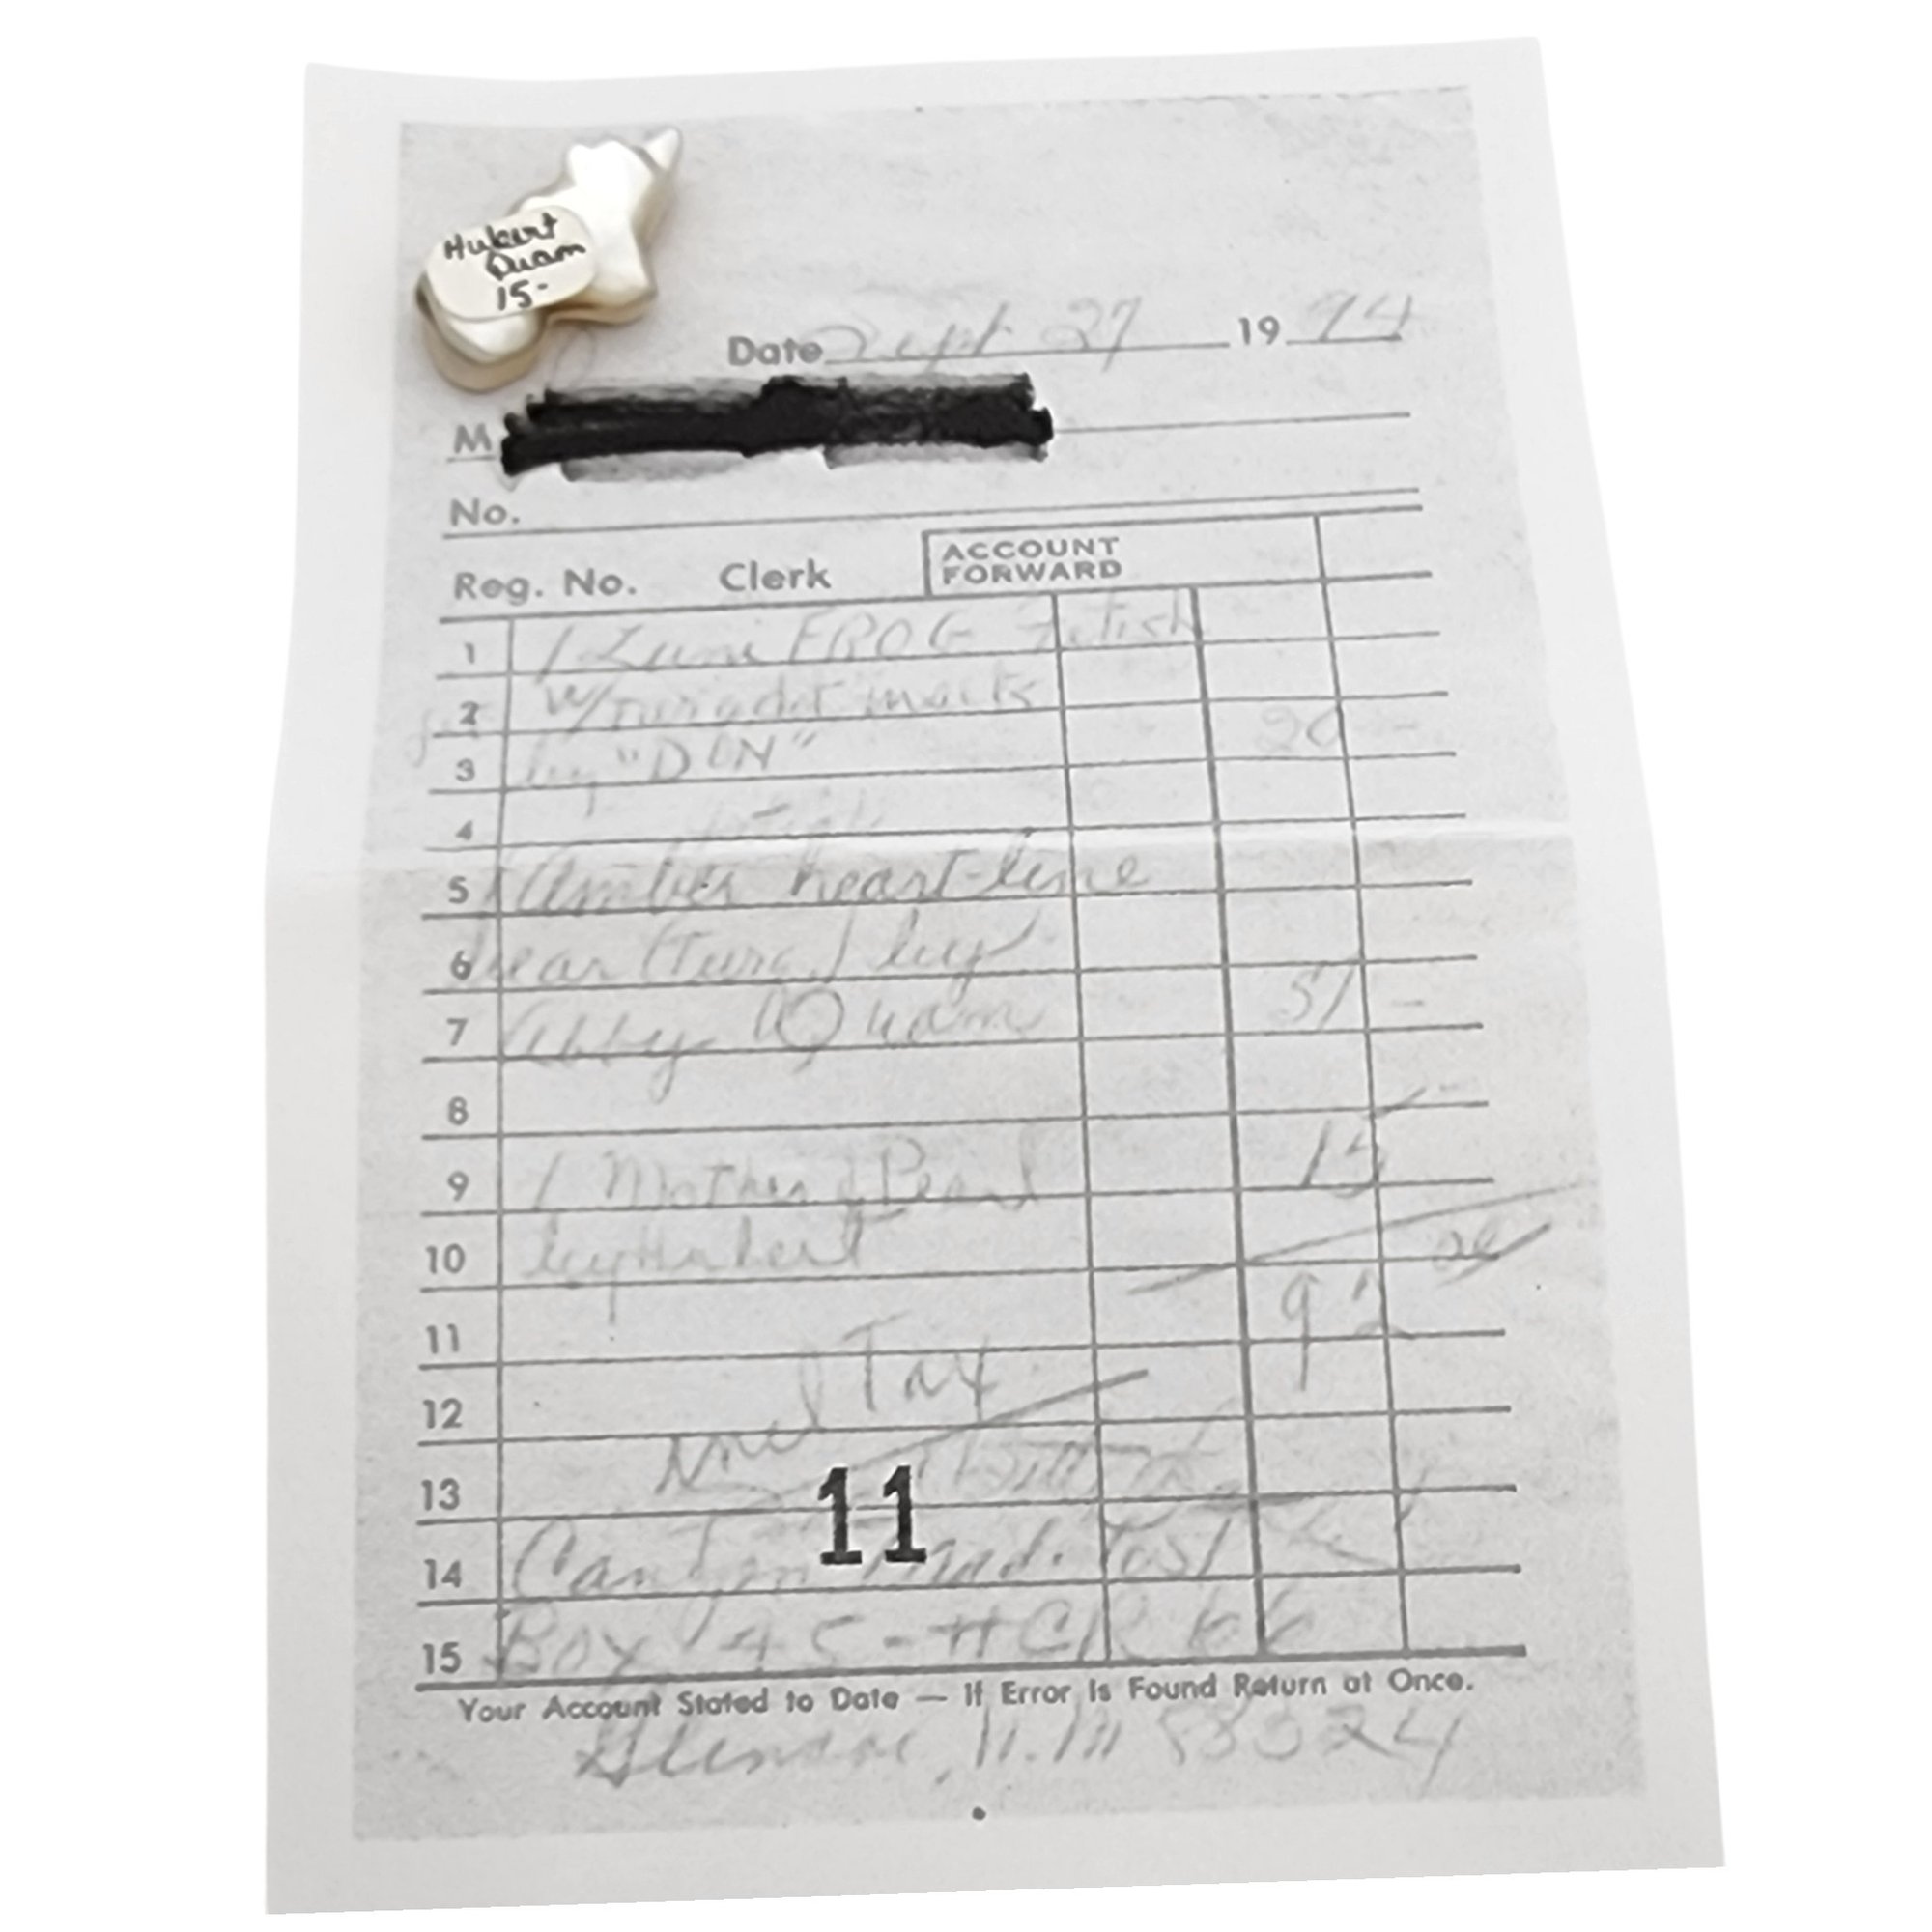 Hubert
Quam
15-
Date Sept 27 19 94
M
No.
Reg. No. Clerk ACCOUNT FORWARD
1 1 Zuni FROG Fetish
2 w/
3 by "DON" 20 -
4
5 Amber heart-line
6 bear (Turq.) by
7 Abby Quam 51 -
8
9 1 Mother of Pearl 15
10 by Hubert
11 92
12 incl Tax
13
14 Canyon Trad. Post
15 Box 45-HCR 66
11
Your Account Stated to Date — If Error Is Found Return at Once.
Glenwood, N.M 88324